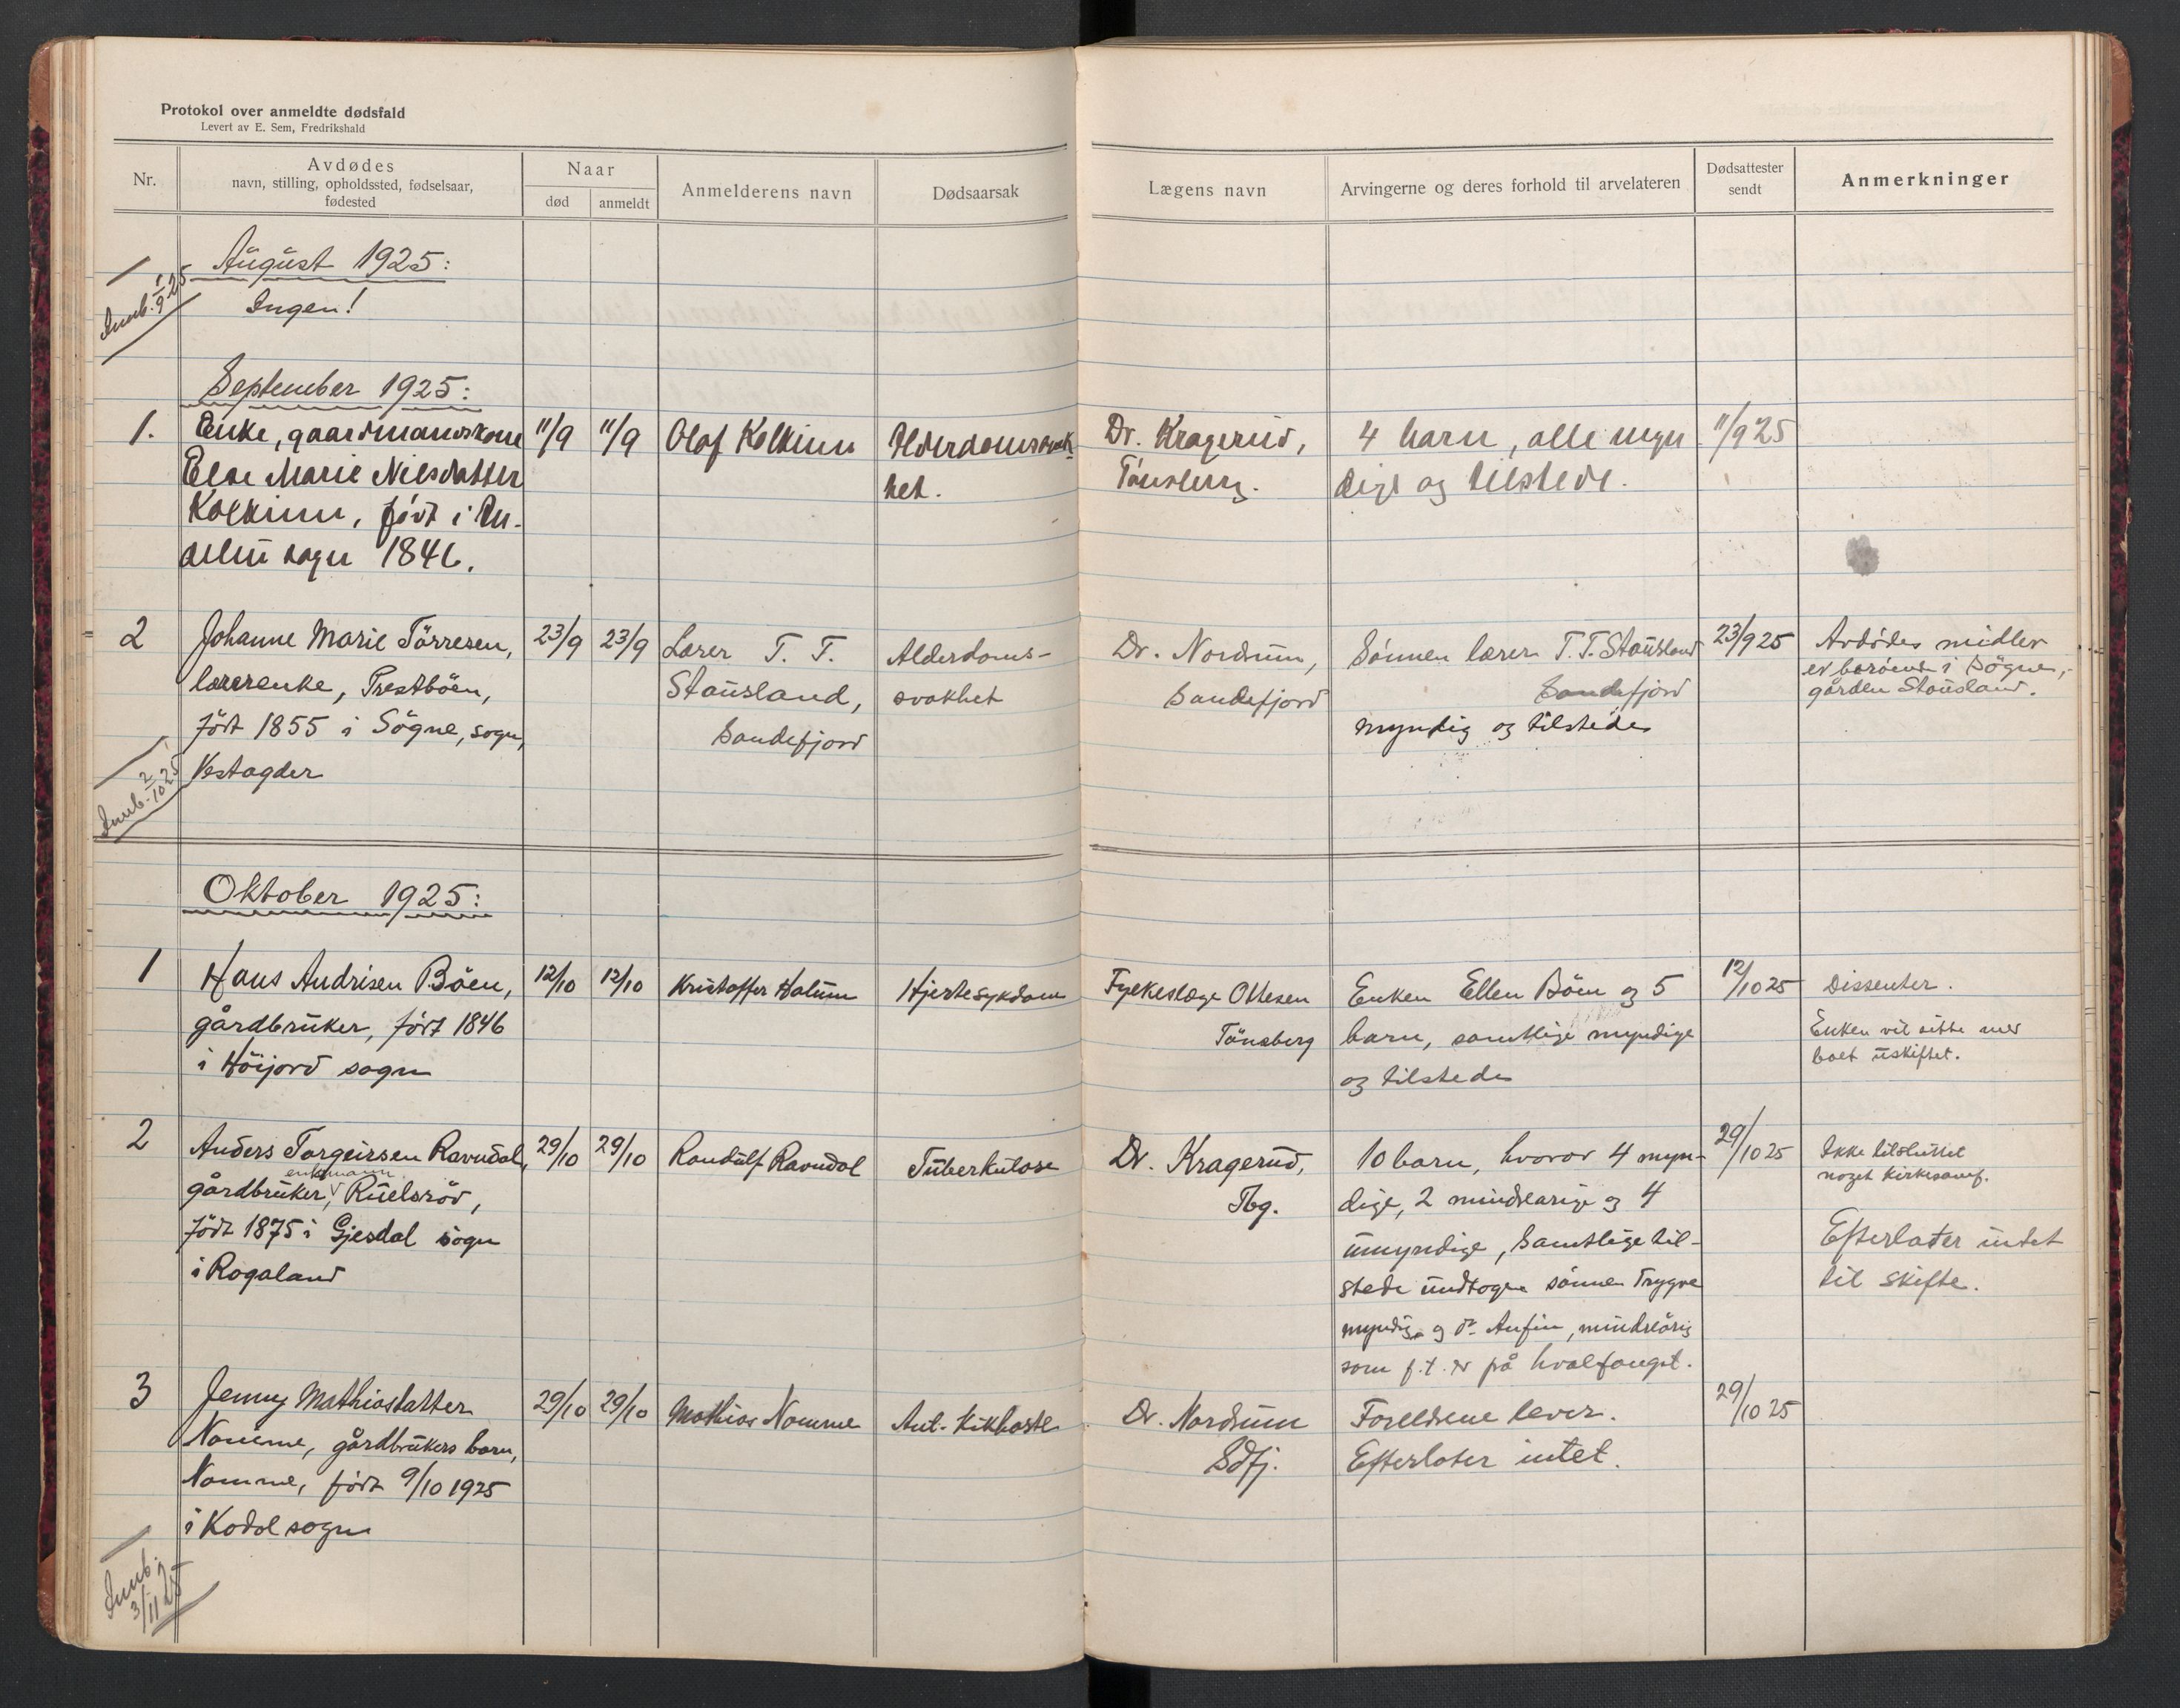 Protokol over anmeldte dødsfald
Levert av E. Sem, Fredrikshald
Nr.
Avdødes
navn, stilling, opholdssted, fødselsaar,
fødested
Naar
død
anmeldt
Anmelderens navn
Dødsaarsak
Lægens navn
Arvingerne og deres forhold til arvelateren
Dødsattester
sendt
Anmerkninger
August 1925:
Innb. 1/9 25
Ingen!
September 1925:
1.
Enke, gaardmandskone
Else Marie Nilsdatter
Kolkinn, född i An-
debu sogn 1846.
11/9
11/9
Olaf Kolkinn
Alderdomssvak-
het.
Dr. Kragerud,
Tönsberg.
4 barn, alle myn
dige og tilstede.
11/9 25
2
Johanne Marie Törresen,
lærerenke, Prestböen,
född 1855 i Sögne, sogn,
Vestagder
23/9
23/9
Lærer T. T.
Stausland,
Sandefjord
Alderdoms-
svakhet
Dr. Nordrum,
Sandefjord
Sönnen lærer T. T. Stausland
Sandefjord
myndig og tilstede
23/9 25
Avdödes midler
er beroende i Sögne,
gården Stausland.
Innb. 2/10 25
Oktober 1925:
1
Hans Andrisen Böen,
gårdbruker, född 1846
i Höijord sogn
12/10
12/10
Kristoffer Holum
Hjertesykdom
Fylkeslæge Ottesen
Tönsberg
Enken Ellen Böen og 5
barn, samtlige myndige
og tilstede
12/10 25
Dissenter.
Enken vil sitte med
boet uskiftet.
2
Anders Torgeirsen Ravndal,
enkemann
gårdbruker, Ruelsröd,
född 1875 i Gjesdal sogn
i Rogaland
29/10
29/10
Randulf Ravndal
Tuberkulose
Dr. Kragerud,
Tbg.
10 barn, hvorav 4 myn-
dige, 2 mindreårige og 4
umyndige, samtlige til-
stede undtagen sönnen Trygve
myndig og do Anfin, mindreårig
som f.t. er på hvalfangst.
29/10 25
Ikke tilsluttet
noget kirkesamf.
Efterlater intet
til skifte.
3
Jenny Mathiasdatter
Nomme, gårdbrukers barn,
Nomme, född 9/10 1925
i Kodal sogn
29/10
29/10
Mathias Nomme
Ant. Kikhoste
Dr. Nordrum
Sdfj.
Foreldrene lever.
Efterlater intet.
29/10 25
Innb.
3/11 25